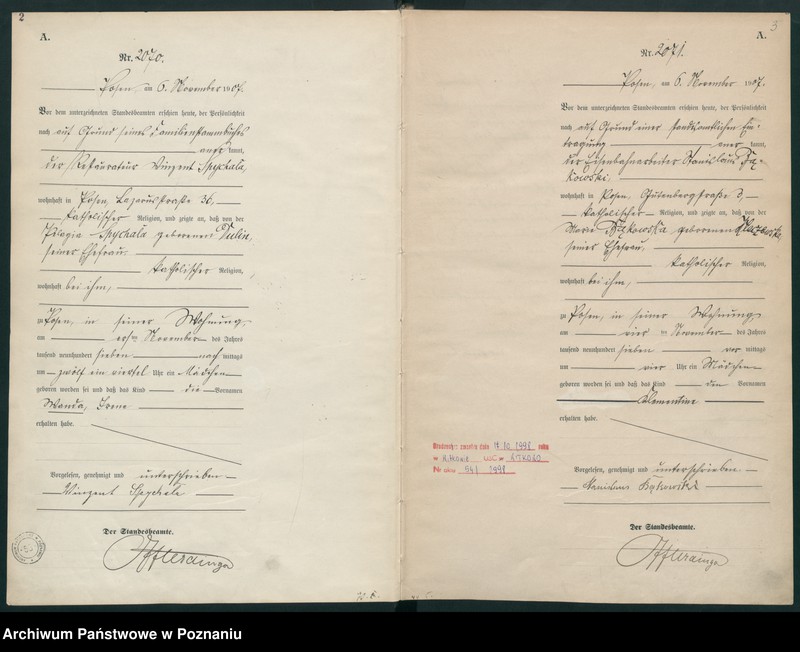 2
A.
Nr. 2070.
Posen, am 6. November 1907.
Vor dem unterzeichneten Standesbeamten erschien heute, der Persönlichkeit
nach auf Grund seines Familienstammbuches
anerkannt,
der Restaurateur Vinzent Spychala,
wohnhaft in Posen, Lazarusstraße 36,
katholischer Religion, und zeigte an, daß von der
Pelagia Spychala geborenen
seiner Ehefrau,
katholischer Religion,
wohnhaft bei ihm,
zu Posen, in seiner Wohnung,
am ersten November des Jahres
tausend neunhundert sieben nachmittags
um zwölf ein viertel Uhr ein Mädchen
geboren worden sei und daß das Kind die Vornamen
Wanda, Irene
erhalten habe.
Vorgelesen, genehmigt und unterschrieben
Vinzent Spychala
Der Standesbeamte.
3
A.
Nr. 2071.
Posen, am 6. November 1907.
Vor dem unterzeichneten Standesbeamten erschien heute, der Persönlichkeit
nach auf Grund einer standesamtlichen Ein-
tragung anerkannt,
der Eisenbahnarbeiter Stanislaus Bą-
kowski,
wohnhaft in Posen, Gutenbergstraße 3,
katholischer Religion, und zeigte an, daß von der
Marie Bąkowska geborenen
seiner Ehefrau,
katholischer Religion,
wohnhaft bei ihm,
zu Posen, in seiner Wohnung,
am vier ten November des Jahres
tausend neunhundert sieben vormittags
um vier Uhr ein Mädchen
geboren worden sei und daß das Kind den Vornamen
Klementine
erhalten habe.
Vorgelesen, genehmigt und unterschrieben
Stanislaus Bąkowski
Der Standesbeamte.
dnia 14.10.1998 roku
w USC w
Nr aktu 541 1998
Archiwum Państwowe w Poznaniu